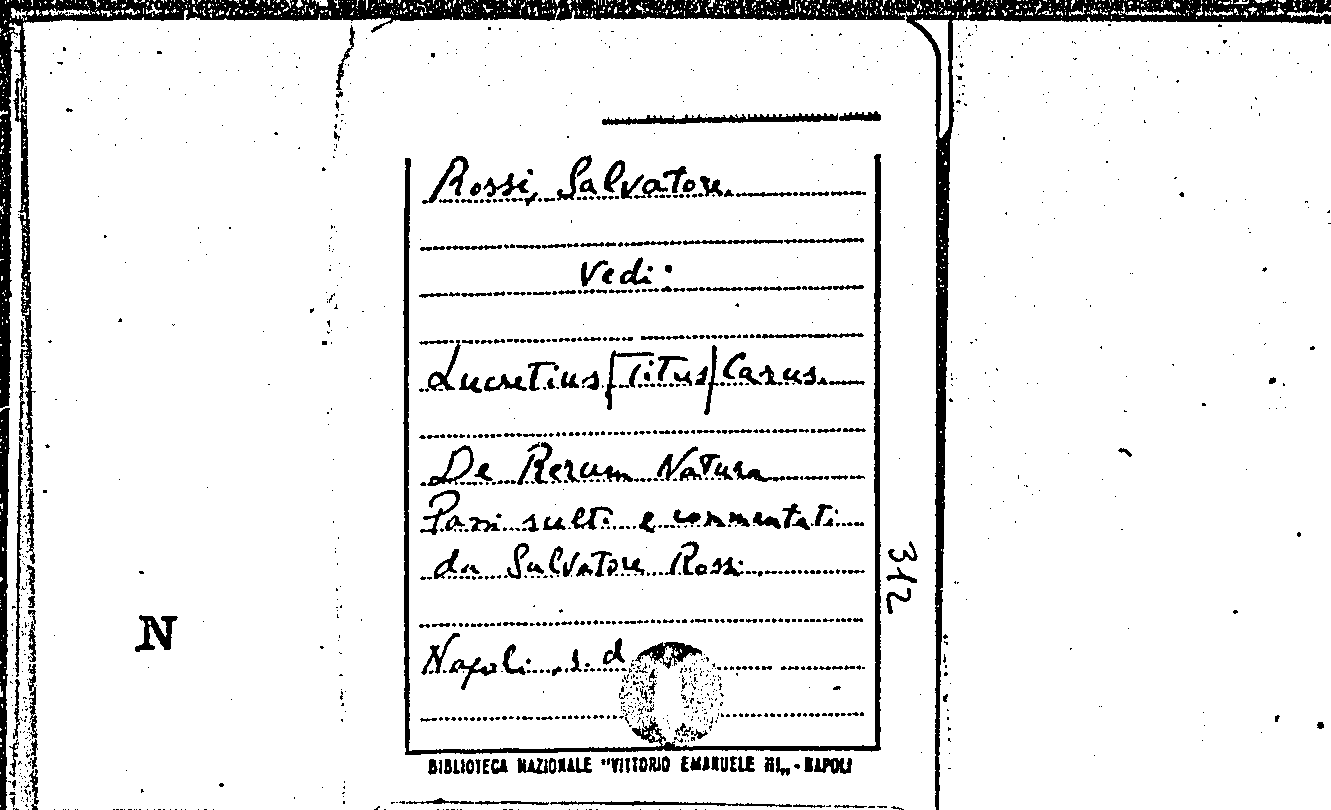 Rossi, Salvatore.
Vedi:
Lucretius [Titus] Carus.
De Rerum Natura
Passi scelti e commentati
da Salvatore Rossi.
Napoli, s. d.
312
N
BIBLIOTECA NAZIONALE "VITTORIO EMANUELE III„ - NAPOLI